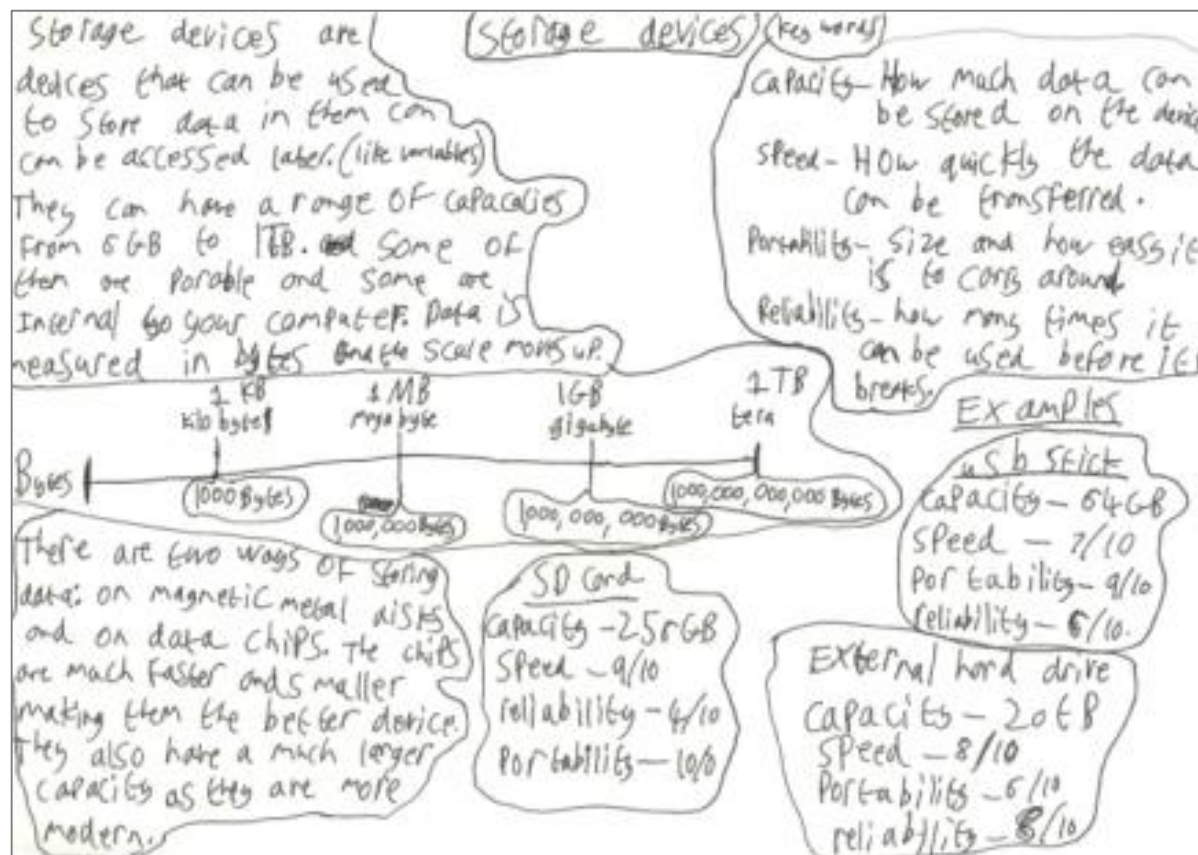 Storage devices
Storage devices are
devices that can be used
to store data in them can
can be accessed later. (like variables)
They can have a range OF capacaties
From GB to 1TB. Some of
them are Porable and some are
Internal to your computer. Data is
measured in bytes and the scale moves up.
key words
capacity - How much data can
be stored on the device
speed - HOw quickly the data
can be transferred.
Portability - size and how easy it
is to carry around.
Reliability - how many times it
can be used before it
breaks.
1 KB 1 MB 1GB 1TB
kilobytes megabyte gigabyte tera
Bytes
1000 Bytes
1,000,000 Bytes
1,000,000,000 Bytes
1000,000,000,000 Bytes
There are two ways OF storing
data: on magnetic metal disks
and on data chips. The chips
are much Faster and smaller
making them the better device.
They also have a much larger
capacity as they are more
modern.
SD Card
capacity - GB
speed - 9/10
reliability - /10
Portability - 10/0
Examples
usb stick
capacity - 64GB
speed - 7/10
portability - 9/10
reliability - /10.
External hard drive
capacity - 20tB
speed - 8/10
Portability - /10
reliability - /10